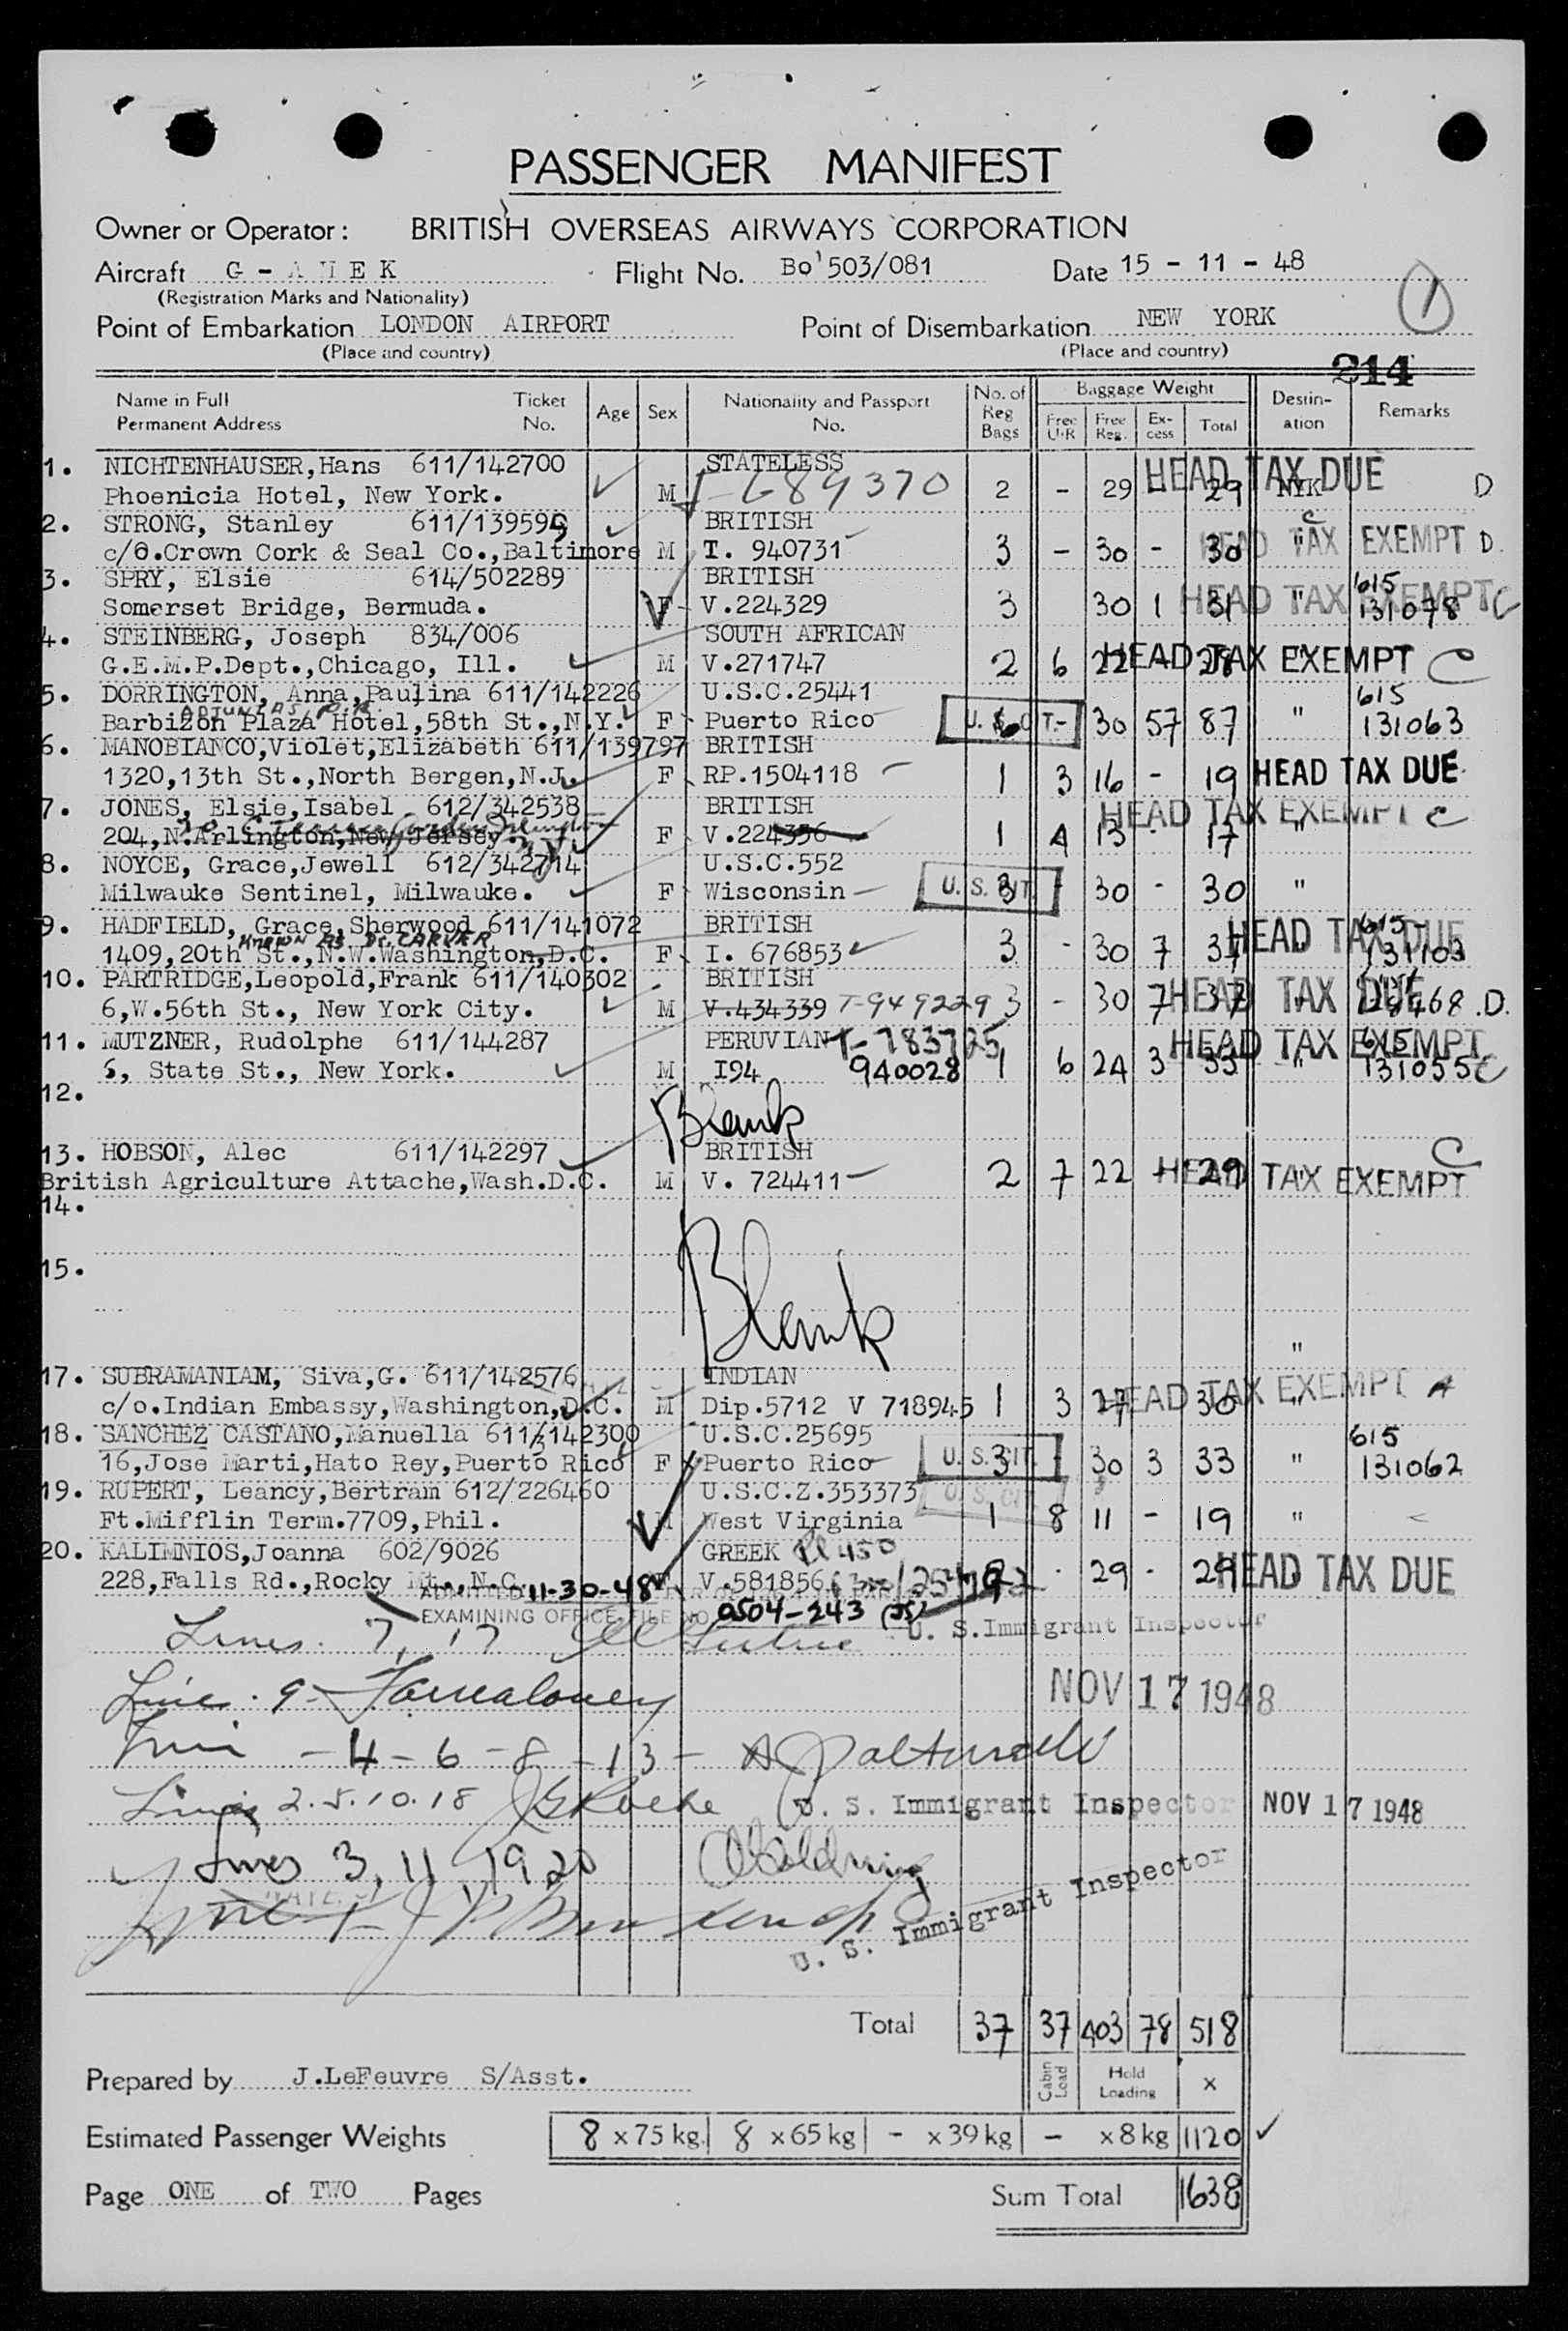 PASSENGER MANIFEST
Owner or Operator: BRITISH OVERSEAS AIRWAYS CORPORATION
Aircraft G - A H E K Flight No. Bo'503/081 Date 15 - 11 - 48
(Registration Marks and Nationality)
1
Point of Embarkation LONDON AIRPORT Point of Disembarkation NEW YORK
(Place and country) (Place and country)
214
Name in Full Permanent Address Ticket No. Age Sex Nationality and Passport No. No. of Reg Bags Baggage Weight Free U-R Free Reg. Ex-cess Total Destin-ation Remarks
1. NICHTENHAUSER,Hans 611/142700 STATELESS HEAD TAX DUE
Phoenicia Hotel, New York. M 689370 2 - 29 - 29 NYK D
2. STRONG, Stanley 611/139595 BRITISH
c/o.Crown Cork & Seal Co.,Baltimore M T. 940731 3 - 30 - 30 " HEAD TAX EXEMPT D.
3. SPRY, Elsie 614/502289 BRITISH 615
Somerset Bridge, Bermuda. F V.224329 3 30 1 31 " HEAD TAX EXEMPT 131078 C
4. STEINBERG, Joseph 834/006 SOUTH AFRICAN
G.E.M.P.Dept.,Chicago, Ill. M V.271747 2 6 22 - 28 " HEAD TAX EXEMPT C
5. DORRINGTON, Anna,Paulina 611/142226 U.S.C.25441 615
Barbizon Plaza Hotel,58th St.,N.Y. F Puerto Rico U. S. CIT. 6 - 30 57 87 " 131063
6. MANOBIANCO,Violet,Elizabeth 611/139797 BRITISH
1320,13th St.,North Bergen,N.J. F RP.1504118 1 3 16 - 19 HEAD TAX DUE
7. JONES, Elsie,Isabel 612/342538 BRITISH HEAD TAX EXEMPT C
204,N.Arlington,New Jersey. F V.224336 1 4 13 - 17 "
8. NOYCE, Grace,Jewell 612/342714 U.S.C.552
Milwauke Sentinel, Milwauke. F Wisconsin U. S. CIT. 3 - 30 - 30 "
9. HADFIELD, Grace,Sherwood 611/141072 BRITISH 615
KNOWN AS Dr. CARVER
1409,20th St.,N.W.Washington,D.C. F I. 676853 3 - 30 7 37 " HEAD TAX DUE 131103
10. PARTRIDGE,Leopold,Frank 611/140302 BRITISH
6,W.56th St., New York City. M V.434339 T-949229 3 - 30 7 37 " HEAD TAX DUE D.
11. MUTZNER, Rudolphe 611/144287 PERUVIAN T-783725 HEAD TAX EXEMPT 615
6, State St., New York. M I94 940028 1 6 24 3 33 " 131055 C
12.
Blank
13. HOBSON, Alec 611/142297 BRITISH C
British Agriculture Attache,Wash.D.C. M V. 724411 2 7 22 - 29 " HEAD TAX EXEMPT
14.
15.
Blank
"
17. SUBRAMANIAM, Siva,G. 611/142576 INDIAN
c/o.Indian Embassy,Washington,D.C. M Dip.5712 V 718945 1 3 27 30 " HEAD TAX EXEMPT A
18. SANCHEZ CASTANO,Manuella 611/142300 U.S.C.25695 615
16,Jose Marti,Hato Rey,Puerto Rico F Puerto Rico U. S. CIT. 3 - 30 3 33 " 131062
19. RUPERT, Leancy,Bertram 612/226460 U.S.C.Z.353373 U. S. CIT.
Ft.Mifflin Term.7709,Phil. M West Virginia 1 8 11 - 19 "
20. KALIMNIOS,Joanna 602/9026 GREEK
228,Falls Rd.,Rocky Mt.,N.C. F V.581856 2 - 29 - 29 " HEAD TAX DUE
ADMITTED 11-30-48
EXAMINING OFFICE FILE NO. 0504-243 (JS)
Lines. 7, 17 U. S. Immigrant Inspector
Line. 9
NOV 17 1948
Line - 4 - 6 - 8 - 13 -
Lines 2.5.10.18 J G Roche U. S. Immigrant Inspector NOV 17 1948
Lines 3, 11, 19, 20
U. S. Immigrant Inspector
Total 37 37 403 78 518
Prepared by J.LeFeuvre S/Asst. Cabin Load Hold Loading x
Estimated Passenger Weights 8 x 75 kg. 8 x 65 kg - x 39 kg - x 8 kg 1120
Page ONE of TWO Pages Sum Total 1638